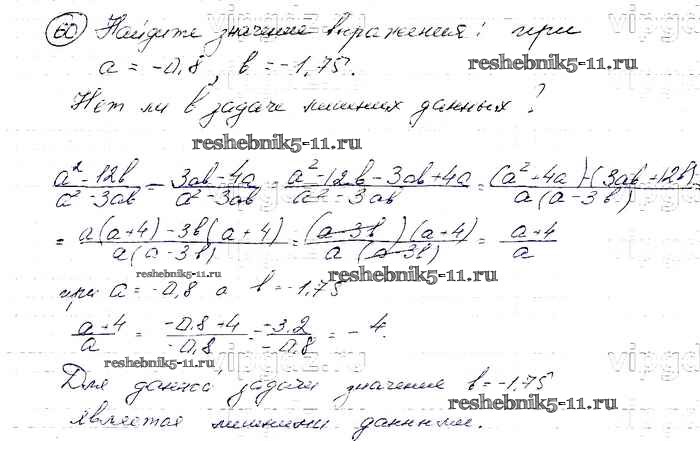 60 Найдите значение выражения: при
a = -0,8, b = -1,75.
reshebnik5-11.ru
Нет ли в задаче лишних данных?
reshebnik5-11.ru
(a² - 12b)/(a² - 3ab) - (3ab - 4a)/(a² - 3ab) = (a² - 12b - 3ab + 4a)/(a² - 3ab) = ((a² + 4a) - (3ab + 12b))/(a(a - 3b)) =
= (a(a + 4) - 3b(a + 4))/(a(a - 3b)) = ((a - 3b)(a + 4))/(a(a - 3b)) = (a + 4)/a
reshebnik5-11.ru reshebnik5-11.ru
при a = -0,8 а b = -1,75
(a + 4)/a = (-0,8 + 4)/(-0,8) = (-3,2)/(-0,8) = -4.
reshebnik5-11.ru
Для данной задачи значение b = -1,75
reshebnik5-11.ru
является лишними данными.